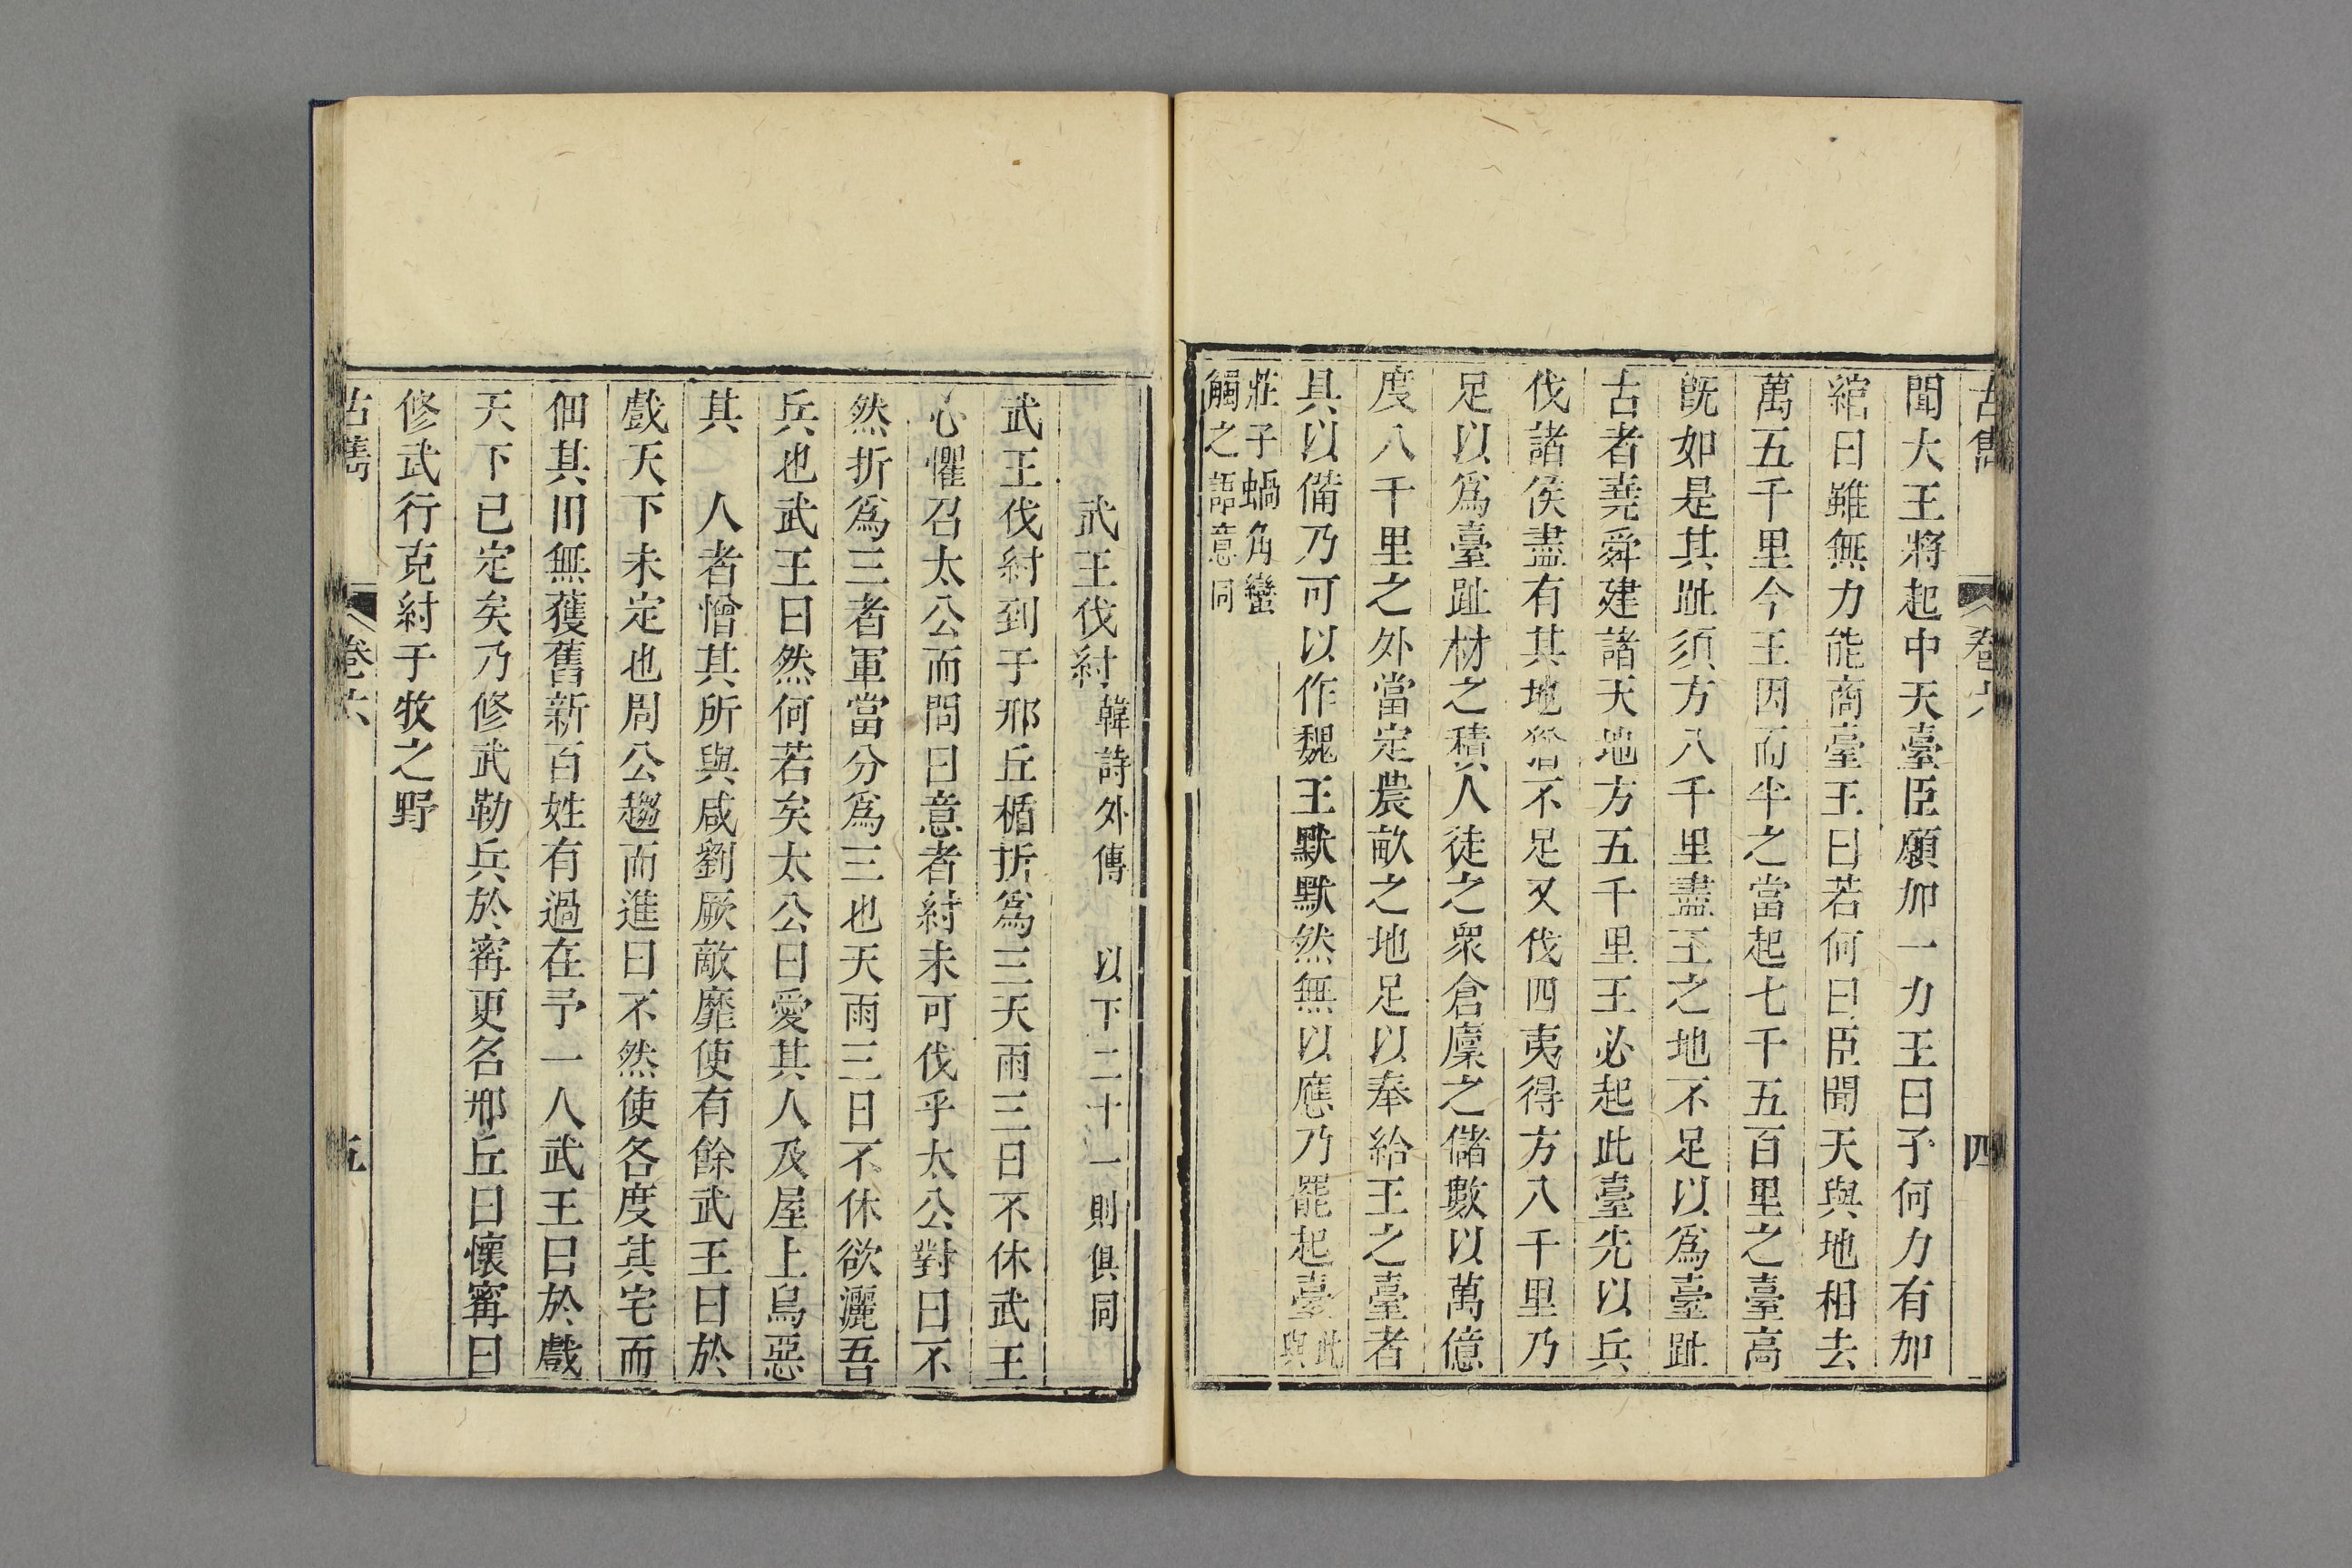 古雋 卷六 四
聞大王將起中天臺臣願加一力王曰子何力有加
綰曰雖無力能商臺王曰若何曰臣聞天與地相去
萬五千里今王因而半之當起七千五百里之臺高
旣如是其趾須方八千里盡王之地不足以爲臺趾
古者堯舜建諸天地方五千里王必起此臺先以兵
伐諸侯盡有其地猶不足又伐四夷得方八千里乃
足以爲臺趾材之積人徒之衆倉廩之儲數以萬億
度八千里之外當定農畝之地足以奉給王之臺者
具以備乃可以作魏王默默然無以應乃罷起臺 此與
莊子蝸角蠻
觸之語意同
武王伐紂 韓詩外傳 以下二十一則俱同
武王伐紂到于邢丘楯折爲三天雨三日不休武王
心懼召太公而問曰意者紂未可伐乎太公對曰不
然折爲三者軍當分爲三也天雨三日不休欲灑吾
兵也武王曰然何若矣太公曰愛其人及屋上烏惡
其 人者憎其所與咸劉厥敵靡使有餘武王曰於
戲天下未定也周公趨而進曰不然使各度其宅而
佃其田無獲舊新百姓有過在予一人武王曰於戲
天下已定矣乃修武勒兵於甯更名邢丘曰懷甯曰
修武行克紂于牧之野
古雋 卷六 五